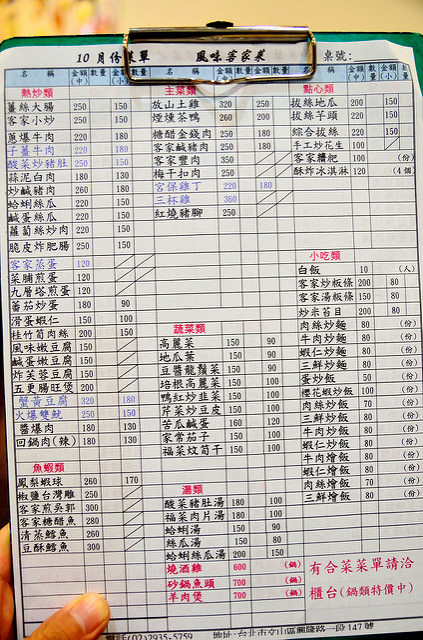 10 月份菜單 風味客家菜 桌號:
名 稱 金額(中) 數量 金額(小) 數量
熱炒類
薑絲大腸 250 150
客家小炒 250 150
蔥爆牛肉 220 180
子薑牛肉 220 180
酸菜炒豬肚 250 150
蒜泥白肉 180 130
炒鹹豬肉 260 180
蛤蜊絲瓜 220 150
鹹蛋絲瓜 220 150
蘿蔔絲炒肉 220 150
脆皮炸肥腸 250 150
客家蒸蛋 120
菜脯煎蛋 120
九層塔煎蛋 120
蕃茄炒蛋 180 90
滑蛋蝦仁 150 100
桂竹筍肉絲 200 150
風味嫩豆腐 150
鹹蛋嫩豆腐 150
炸芙蓉豆腐 150
五更腸旺煲 200
蟹黃豆腐 320 180
火爆雙魷 250 150
醬爆肉 180 130
回鍋肉(辣) 180 130
魚蝦類
鳳梨蝦球 260 170
椒鹽台灣雕 250
客家煎吳郭 300
客家糖醋魚 280
清蒸鱈魚 260
豆酥鱈魚 300
主菜類
放山土雞 320 250
煙燻茶鴨 260 200
糖醋金錢肉 250 180
客家鹹豬肉 250 180
客家豐肉 350
梅干扣肉 250
宮保雞丁 220 180
三杯雞 360
紅燒豬腳 250
蔬菜類
高麗菜 150 90
地瓜葉 150 90
豆醬龍鬚菜 150 90
培根高麗菜 150 100
鴨紅炒韭菜 150 100
芹菜炒豆皮 150 100
苦瓜鹹蛋 160 120
家常茄子 150 100
福菜炆筍干 150 100
湯類
酸菜豬肚湯 180 100
福菜肉片湯 180 100
蛤蜊湯 150 90
絲瓜湯 150 80
蛤蜊絲瓜湯 200 150
燒酒雞 600 (鍋)
砂鍋魚頭 700 (鍋)
羊肉煲 700 (鍋)
點心類
拔絲地瓜 200 150
拔絲芋頭 220 150
綜合拔絲 220 150
手工炒花生 100
客家糬粑 100 (份)
酥炸冰淇淋 120 (4個)
小吃類
白飯 10 (人)
客家炒粄條 200 80
客家湯粄條 150 80
炒米苔目 200 80
肉絲炒麵 80 (份)
牛肉炒麵 80 (份)
蝦仁炒麵 80 (份)
三鮮炒麵 80 (份)
蛋炒飯 50 (份)
櫻花蝦炒飯 100 (份)
肉絲炒飯 70 (份)
三鮮炒飯 80 (份)
牛肉炒飯 80 (份)
蝦仁炒飯 80 (份)
牛肉燴飯 80 (份)
蝦仁燴飯 80 (份)
肉絲燴飯 70 (份)
三鮮燴飯 80 (份)
有合菜菜單請洽
櫃台(鍋類特價中)
電話(02)2935-5759 地址:台北市文山區興隆路一段147號